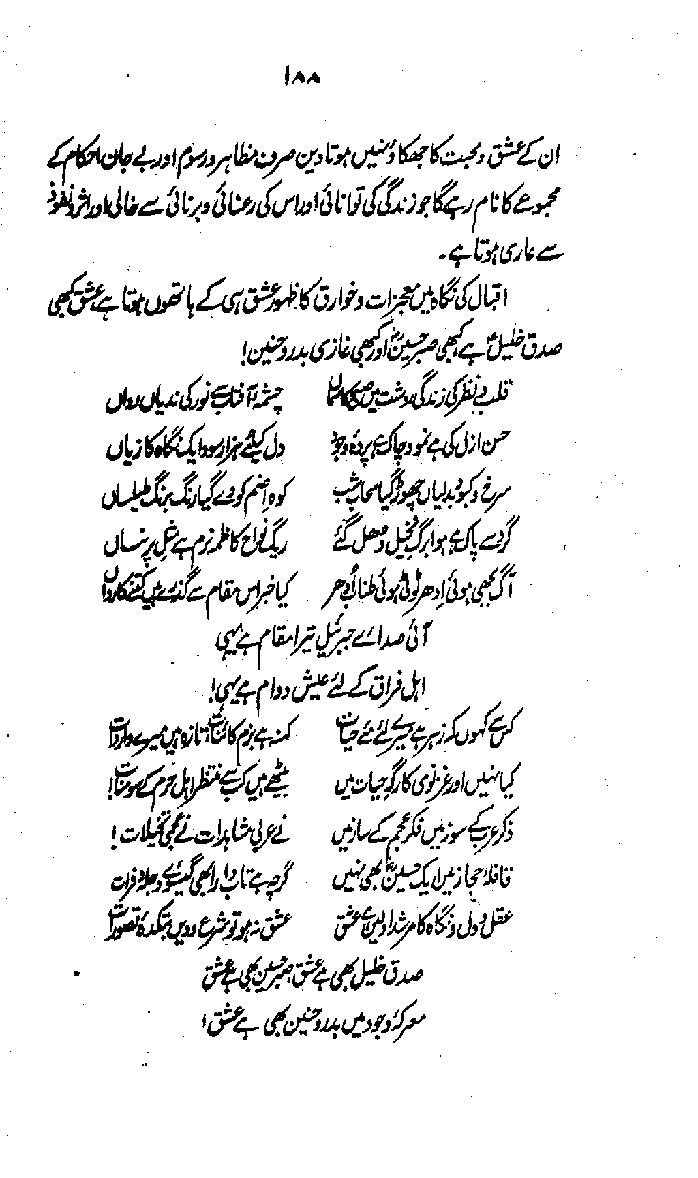 ۱۸۸
ان کے عشق و محبت کا جھکاؤ نہیں ہوتا دین صرف مظاہر و رسوم اور بے جان احکام کے
مجموعے کا نام رہے گا جو زندگی کی توانائی اور اس کی رعنائی و برنائی سے خالی اور اثر و نفوذ
سے عاری ہوتا ہے۔
اقبال کی نگاہ میں معجزات و خوارق کا ظہور عشق ہی کے ہاتھوں ہوتا ہے عشق کبھی
صدق خلیلؑ ہے کبھی صبر حسینؓ اور کبھی غازی بدر و حنین!
قلب و نظر کی زندگی دشت میں صبح کا سماں چشمہ آفتاب سے نور کی ندیاں رواں
حسن ازل کی ہے نمود چاک ہے پردہ وجود دل کیلئے ہزار سود ایک نگاہ کا زیاں
سرخ و کبود بدلیاں چھوڑ گیا سحاب شب کوہ اضم کو دے گیا رنگ برنگ طیلساں
گرد سے پاک ہے ہوا برگ نخیل دھل گئے ریگ نواح کاظمہ نرم ہے مثل پرنیاں
آگ بجھی ہوئی ادھر ٹوٹی ہوئی طناب ادھر کیا خبر اس مقام سے گذرے ہیں کتنے کارواں
آئی صدائے جبرئیل تیرا مقام ہے یہی
اہل فراق کے لئے عیش دوام ہے یہی!
کس سے کہوں کہ زہر ہے میرے لئے مئے حیات کہنہ ہے بزم کائنات تازہ ہیں میرے واردات
کیا نہیں اور غزنوی کارگہ حیات میں بیٹھے ہیں کب سے منتظر اہل حرم کے سومنات!
ذکر عرب کے سوز میں فکر عجم کے ساز میں نے عربی مشاہدات نے عجمی تخیلات!
قافلۂ حجاز میں ایک حسینؓ بھی نہیں گرچہ ہے تاب دار ابھی گیسوئے دجلہ و فرات
عقل و دل و نگاہ کا مرشد اولیں ہے عشق عشق نہ ہو تو شرع و دیں بتکدہ تصورات
صدق خلیل بھی ہے عشق صبر حسین بھی ہے عشق
معرکۂ وجود میں بدر و حنین بھی ہے عشق!